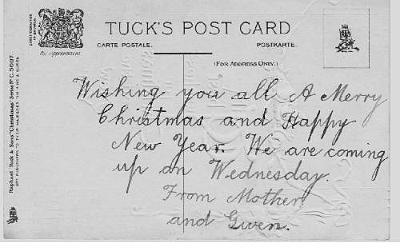 TUCK'S POST CARD
CARTE POSTALE.
POSTKARTE.
(FOR ADDRESS ONLY.)
Wishing you all A Merry
Christmas and Happy
New Year. We are coming
up on Wednesday.
From Mother
and Gwen.
By Appointment
Raphael Tuck & Sons' "Christmas" Series